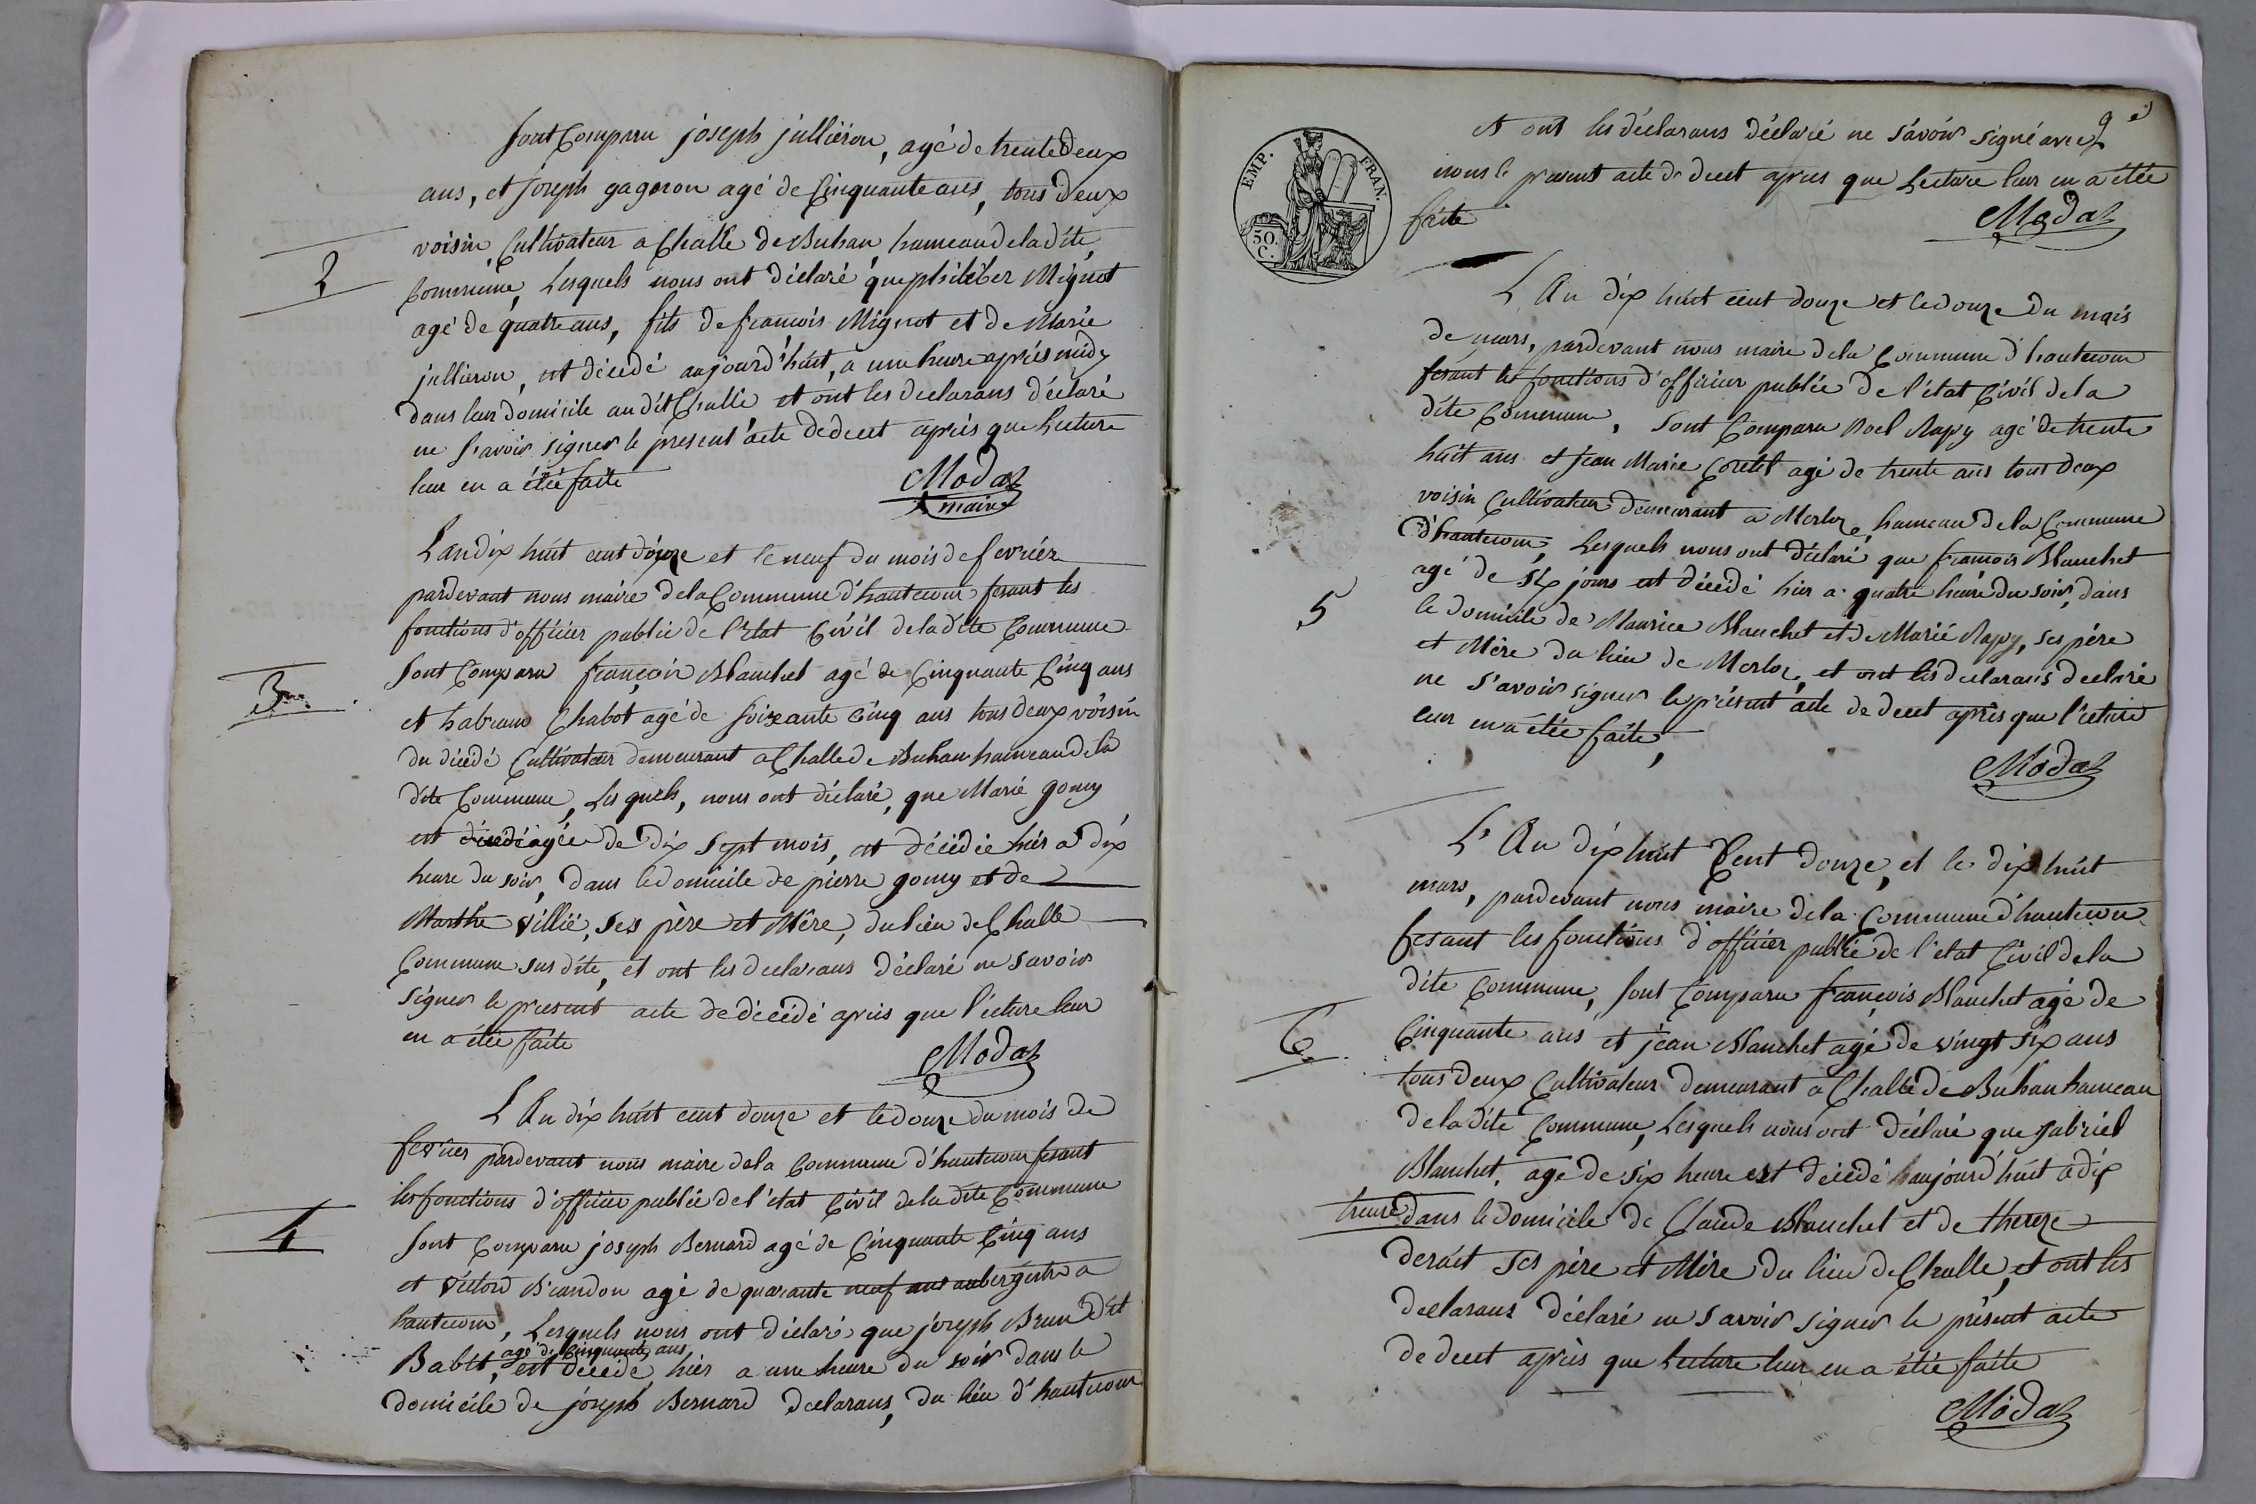 sont Comparu joseph jullièron, agé de trente deux
ans, et joseph gagneron agé de Cinquante ans, tous deux
voisin Cultivateur a Challe de Buhan hameau de la dite
2
Commune, Lesquels nous ont déclaré que philiber Mignot
agé de quatre ans, fils de francois Mignot et de Marie
jullieron, est décédé aujourd'huit, a une heure après midy
dans leur domicile au dit Challe et ont les declarans déclaré
ne s'avoir signer le present acte de decet après que Lecture
leur en a étée faite
Modas
maire
L'an dix huit cent douze et le neuf du mois de fevrièr
pardevant nous maire de la Commune d'hautecour fesant les
fonctions d'officier publiè de l'état Civil de la dite Commune
3
Sont Comparu françois Blanchet agé de Cinquante Cinq ans
et Chabot agé de soixante Cinq ans tous deux voisin
du décédé Cultivateur demeurant a Challe de Buhan hameau de la
dite Commune, Lesquels, nous ont déclaré, que Marie gouy
est agée de dix sept mois, est décédée hièr a dix
heure du soir, dans le domicile de pierre gouy et de
Marthe Villié, ses père et Mère, du lieu de Challe
Commune sus dite, et ont les declarans déclaré ne savoir
signer le present acte de décédé après que l'ecture leur
en a étée faite
Modas
L'An dix huit cent douze et le douze du mois de
fevrier pardevant nous maire de la Commune d'hautecour fesant
les fonctions d'officier publiè de l'état Civil de la dite Commune
4
sont Comparu joseph Bernard agé de Cinquante Cinq ans
et Victord Brandon agé de quarante neuf ans aubergiste a
hautecour, Lesquels nous ont déclaré que joseph Brun dit
agé de Cinquante ans
Babet, est décédé, hièr a une heure du soir dans le
domicile de joseph Bernard declarans, du lieu d'hautecour
9
et ont les déclarans déclaré ne s'avoir signé avec
EMP. FRAN.
50. C.
nous le present acte de decet apres que Lecture leur en a étée
faite
Modas
L'An dix huit cent douze et le douze du mois
de mars, pardevant nous maire de la Commune d'hautecour
fesant les fonctions d'officier publiée de l'état Civil de la
dite Commune, sont Comparu Noel Rapy agé de trente
huit ans et jean Marie Coretet agé de trente ans tous deux
voisin Cultivateur demeurant a Merloz, hameau de la Commune
d'hautecour, Lesquels nous ont déclaré que francois Blanchet
agé de six jours est décédé hier a quatre heure du soir, dans
5
le domicile de Maurice Blanchet et de Marié Rapy, ses père
et Mère du lieu de Merloz, et ont les declarans declaré
ne s'avoir signer le présent acte de decet après que l'ecture
leur en a étée faite,
Modas
L'An dix huit Cent douze, et le dix huit
mars, pardevant nous maire de la Commune d'hautecour
fesant les fonctions d'officier publiée de l'état Civil de la
dite Commune, sont Comparu francois Blanchet agé de
6
Cinquante ans et jean Blanchet agé de vingt six ans
tous deux Cultivateur demeurant a Challe de Buhan hameau
de la dite Commune, Lesquels nous ont déclaré que gabriel
Blanchet, agé de six heure est décédé aujourd'huit a dix
heure dans le domicile de Claude Blanchet et de thereze
derait ses père et Mère du lieu de Challe, et ont les
declarans déclaré ne s'avoir signer le présent acte
de decet après que Lecture leur en a étée faite
Modas